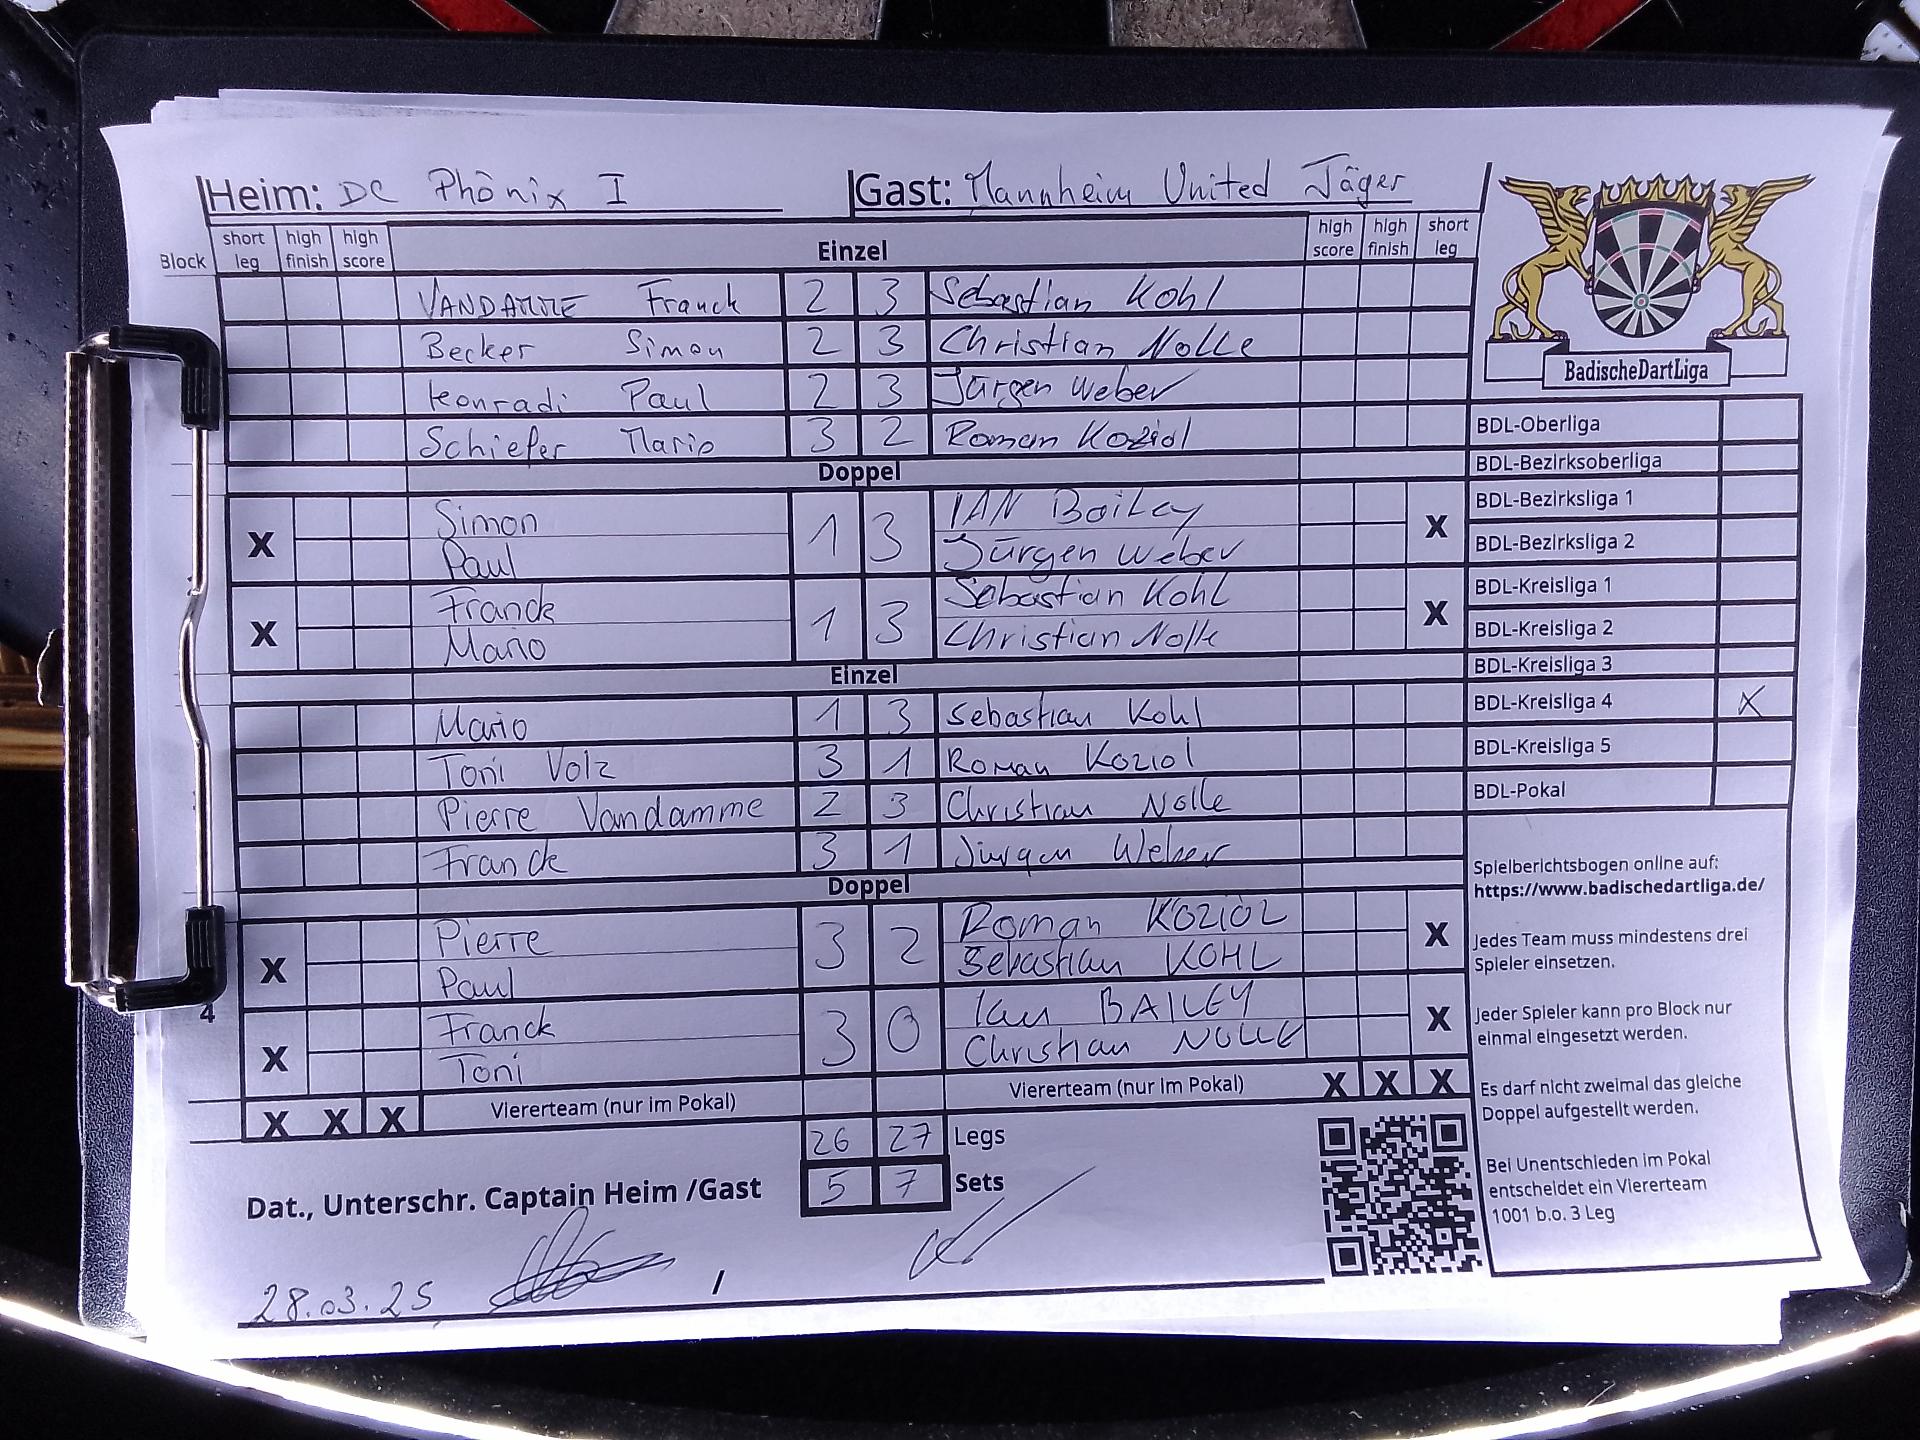 Heim: DC Phönix I Gast: Mannheim United Jäger
Block short leg high finish high score Einzel high score high finish short leg
VANDAMME Franck 2 3 Sebastian Kohl
Becker Simon 2 3 Christian Nolle
Konradi Paul 2 3 Jürgen Weber
Schiefer Mario 3 2 Roman Koziol
Doppel
Simon IAN Bailey
X 1 3 X
Paul Jürgen Weber
Franck Sebastian Kohl
X 1 3 X
Mario Christian Nolle
Einzel
Mario 1 3 Sebastian Kohl
Toni Volz 3 1 Roman Koziol
Pierre Vandamme 2 3 Christian Nolle
Franck 3 1 Jürgen Weber
Doppel
Pierre Roman KOZIOL
X 3 2 X
Paul Sebastian KOHL
4
Franck Ian BAILEY
X 3 0 X
Toni Christian NOLLE
X X X Viererteam (nur im Pokal) Viererteam (nur im Pokal) X X X
26 27 Legs
5 7 Sets
Dat., Unterschr. Captain Heim /Gast
28.03.25 /
BadischeDartLiga
BDL-Oberliga
BDL-Bezirksoberliga
BDL-Bezirksliga 1
BDL-Bezirksliga 2
BDL-Kreisliga 1
BDL-Kreisliga 2
BDL-Kreisliga 3
BDL-Kreisliga 4 X
BDL-Kreisliga 5
BDL-Pokal
Spielberichtsbogen online auf:
https://www.badischedartliga.de/
Jedes Team muss mindestens drei
Spieler einsetzen.
Jeder Spieler kann pro Block nur
einmal eingesetzt werden.
Es darf nicht zweimal das gleiche
Doppel aufgestellt werden.
Bei Unentschieden im Pokal
entscheidet ein Viererteam
1001 b.o. 3 Leg